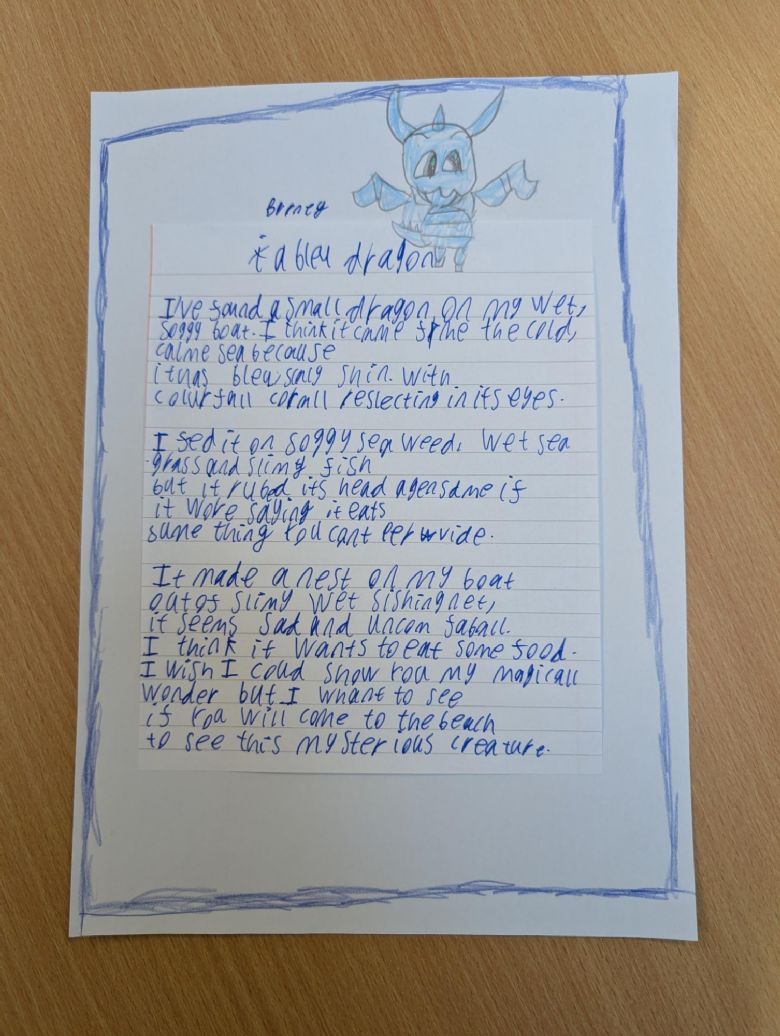 Barney
a bleu dragon
I've found a small dragon on my wet,
soggy boat. I think it came frme the cold,
calme sea because
it has bleu, scaly skin. With
colurfall corall reflecting in its eyes.
I fed it on soggy sea weed, wet sea
grass and slimy fish
but it rubed its head agensdme if
it wore saying it eats
some thing you cant perwvide.
It made a nest on my boat
out of slimy wet fishing net,
it seems sad and uncomfaball.
I think it wants to eat some food.
I wish I coud show you my magicall
wonder but I whant to see
if you will come to the beach
to see this mysterious creature.